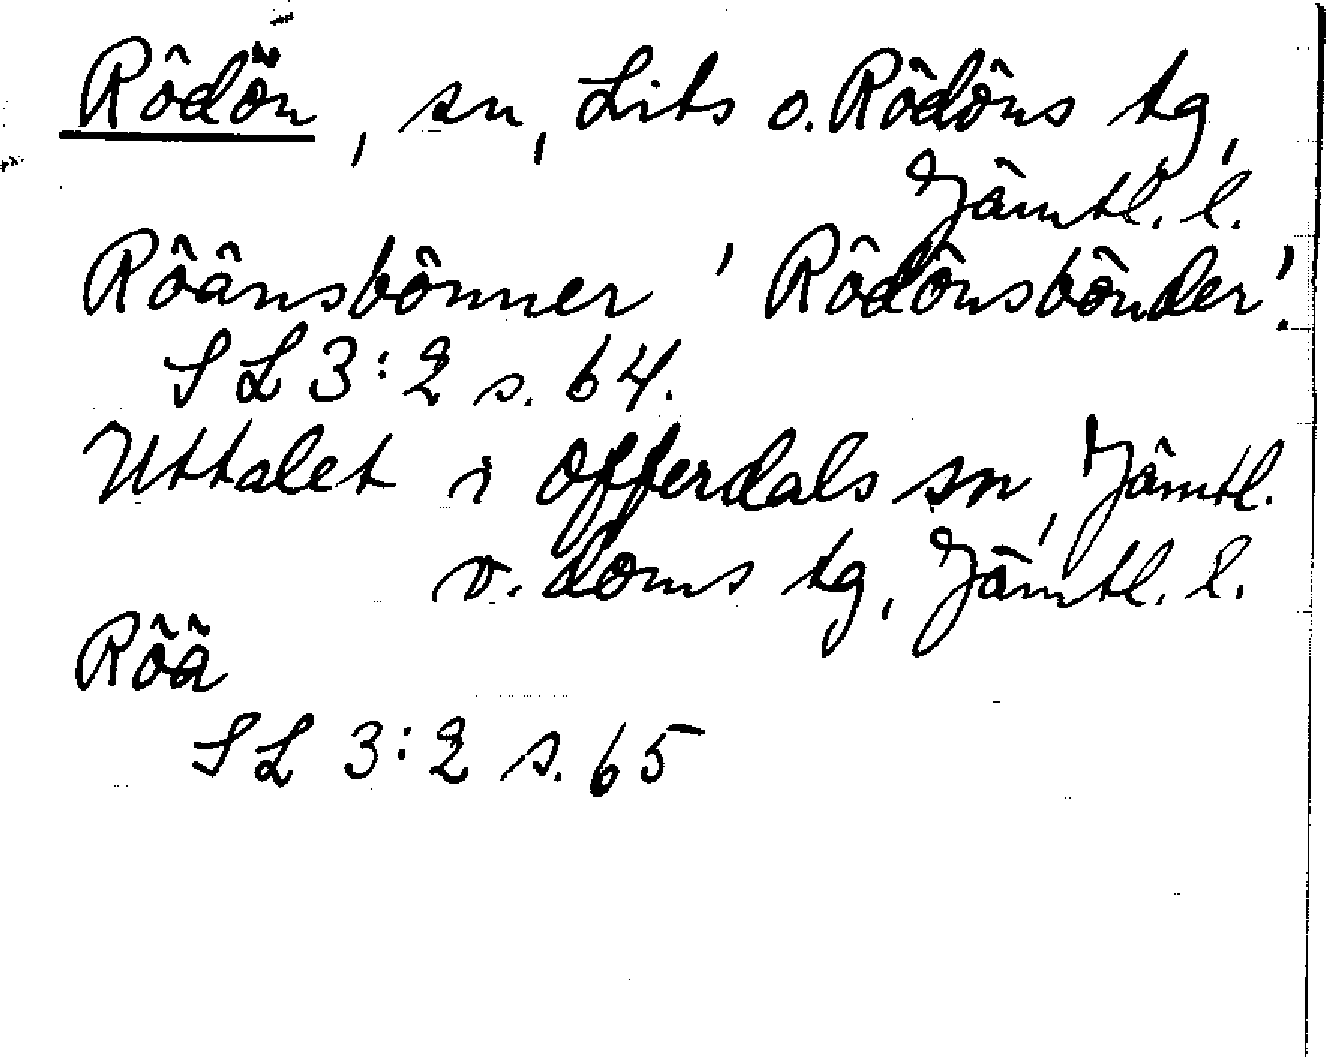 Rödön, sn, Lits o. Rödöns tg,
Jämtl. l.
Rööänsbönner 'Rödönsbönder'.
SL 3:2 s. 64.
Uttalet i Offerdals sn, Jämtl.
v. doms tg, Jämtl. l.
Röä
SL 3:2 s. 65